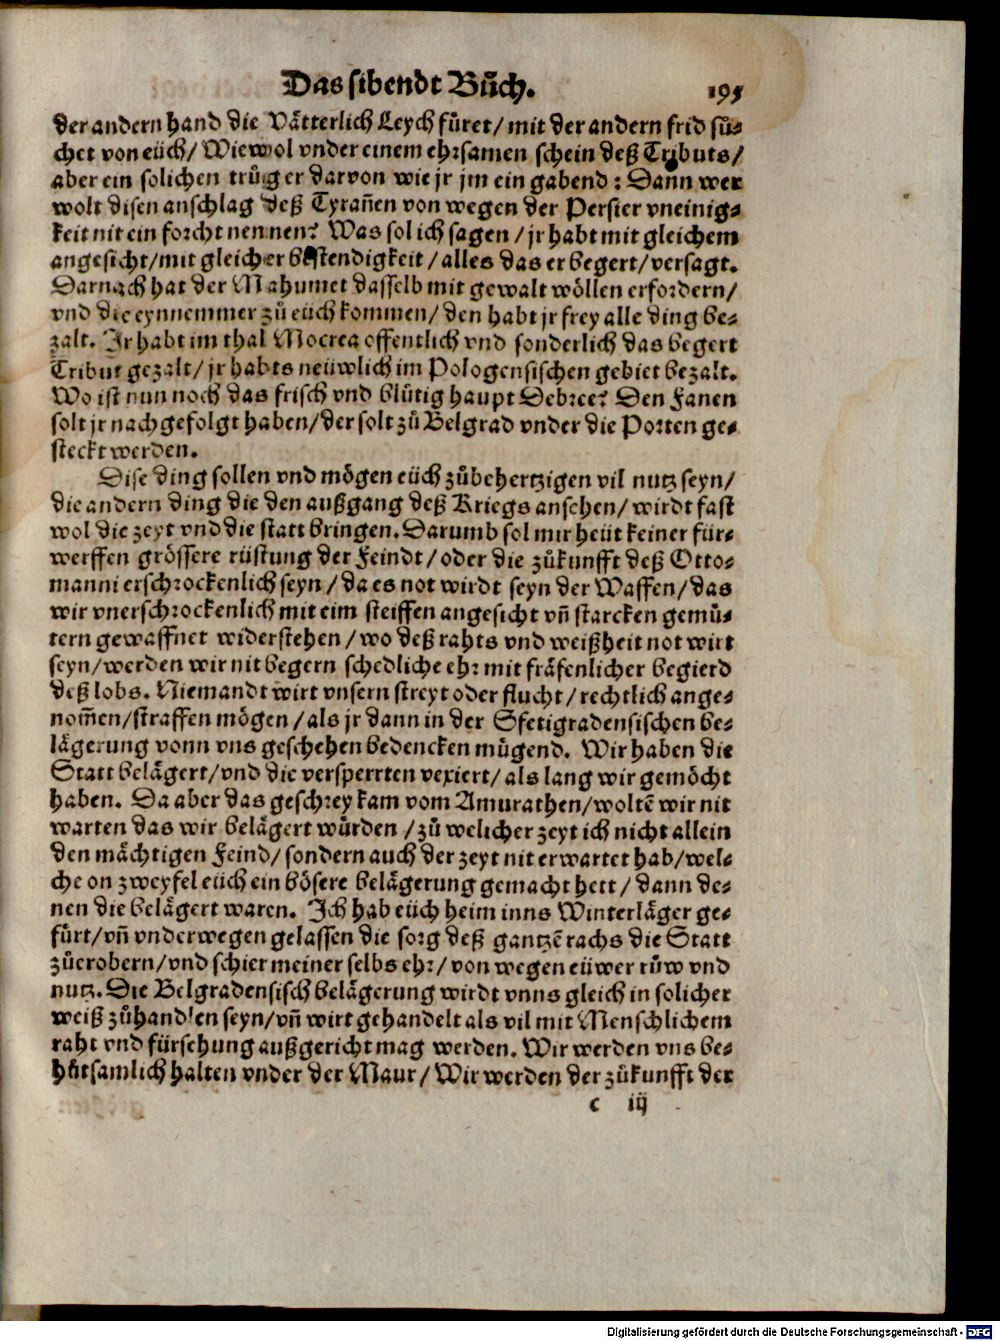 Das sibendt Bůch. 195
der andern hand die Vätterlich Leych füret / mit der andern frid sů-
chet von eüch / Wiewol vnder einem ehrsamen schein deß Tributs /
aber ein solichen trüger darvon wie jr jm ein gabend : Dann wer
wolt disen anschlag deß Tyrañen von wegen der Persier vneinig-
keit nit ein forcht nennen? Was sol ich sagen / jr habt mit gleichem
angesicht / mit gleicher bestendigkeit / alles das er begert / versagt.
Darnach hat der Mahumet dasselb mit gewalt wöllen erfordern /
vnd die eynnemmer zů eüch kommen / den habt jr frey alle ding be-
zalt. Ir habt im thal Mocrea offentlich vnd sonderlich das begert
Tribut gezalt / jr habts neüwlich im Pologensischen gebiet bezalt.
Wo ist nun noch das frisch vnd blůtig haupt Sebree? Den Fanen
solt jr nachgefolgt haben / der solt zů Belgrad vnder die Porten ge-
steckt werden.
Dise ding sollen vnd mögen eüch zůbehertzigen vil nutz seyn /
die andern ding die den außgang deß Kriegs ansehen / wirdt fast
wol die zeyt vnd die statt bringen. Darumb sol mir heüt keiner für-
werffen grössere rüstung der Feindt / oder die zůkunfft deß Otto-
manni erschrockenlich seyn / da es not wirdt seyn der Waffen / das
wir vnerschrockenlich mit eim steiffen angesicht vñ starcken gemů-
tern gewaffnet widerstehen / wo deß rahts vnd weißheit not wirt
seyn / werden wir nit begern schedliche ehr mit fräfenlicher begierd
deß lobs. Niemandt wirt vnsern streyt oder flucht / rechtlich ange-
nom̃en / straffen mögen / als jr dann in der Sfetigradensischen be-
lägerung vonn vns geschehen bedencken mügend. Wir haben die
Statt belägert / vnd die versperrten vexiert / als lang wir gemöcht
haben. Da aber das geschrey kam vom Amurathen / woltẽ wir nit
warten das wir belägert würden / zů welicher zeyt ich nicht allein
den mächtigen Feind / sondern auch der zeyt nit erwartet hab / wel-
che on zweyfel eüch ein bösere belägerung gemacht hett / dann de-
nen die belägert waren. Ich hab eüch heim inns Winterläger ge-
fürt / vñ vnderwegen gelassen die sorg deß gantzẽ rachs die Statt
zůerobern / vnd schier meiner selbs ehr / von wegen eüwer růw vnd
nutz. Die Belgradensisch belägerung wirdt vnns gleich in solicher
weiß zůhandlen seyn / vñ wirt gehandelt als vil mit Menschlichem
raht vnd fürsehung außgericht mag werden. Wir werden vns be-
hůtsamlich halten vnder der Maur / Wir werden der zůkunfft der
c iij
Digitalisierung gefördert durch die Deutsche Forschungsgemeinschaft - DFG